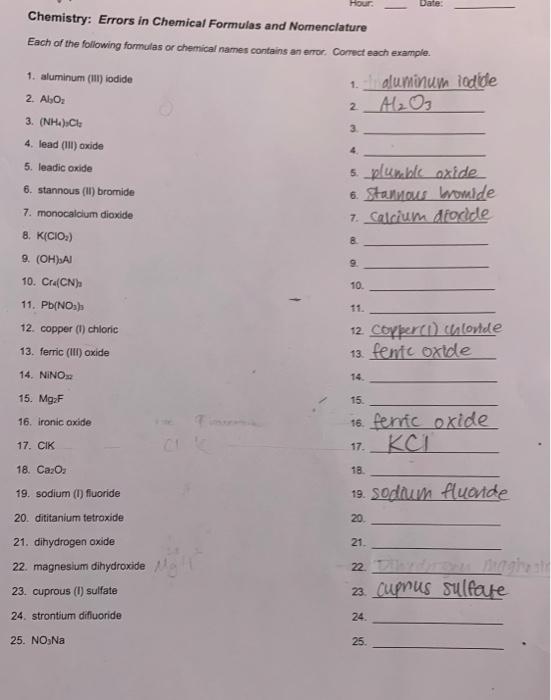 Hour: ___ Date: ___
Chemistry: Errors in Chemical Formulas and Nomenclature
Each of the following formulas or chemical names contains an error. Correct each example.
1. aluminum (III) iodide 1. aluminum iodide
2. Al₃O₂ 2. Al2O3
3. (NH₄)₃Cl₂ 3.
4. lead (III) oxide 4.
5. leadic oxide 5. plumbic oxide
6. stannous (II) bromide 6. Stannous bromide
7. monocalcium dioxide 7. Calcium dioxide
8. K(ClO₂) 8.
9. (OH)₃Al 9.
10. Cr₄(CN)₃ 10.
11. Pb(NO₃)₃ 11.
12. copper (I) chloric 12. copper(1) chloride
13. ferric (III) oxide 13. ferric oxide
14. NiNO₃₂ 14.
15. Mg₂F 15.
16. ironic oxide 16. ferric oxide
17. ClK Cl K 17. KCl
18. Ca₂O₂ 18.
19. sodium (I) fluoride 19. sodium fluoride
20. dititanium tetroxide 20.
21. dihydrogen oxide 21.
22. magnesium dihydroxide 22.
23. cuprous (I) sulfate 23. cuprus sulfate
24. strontium difluoride 24.
25. NO₃Na 25.